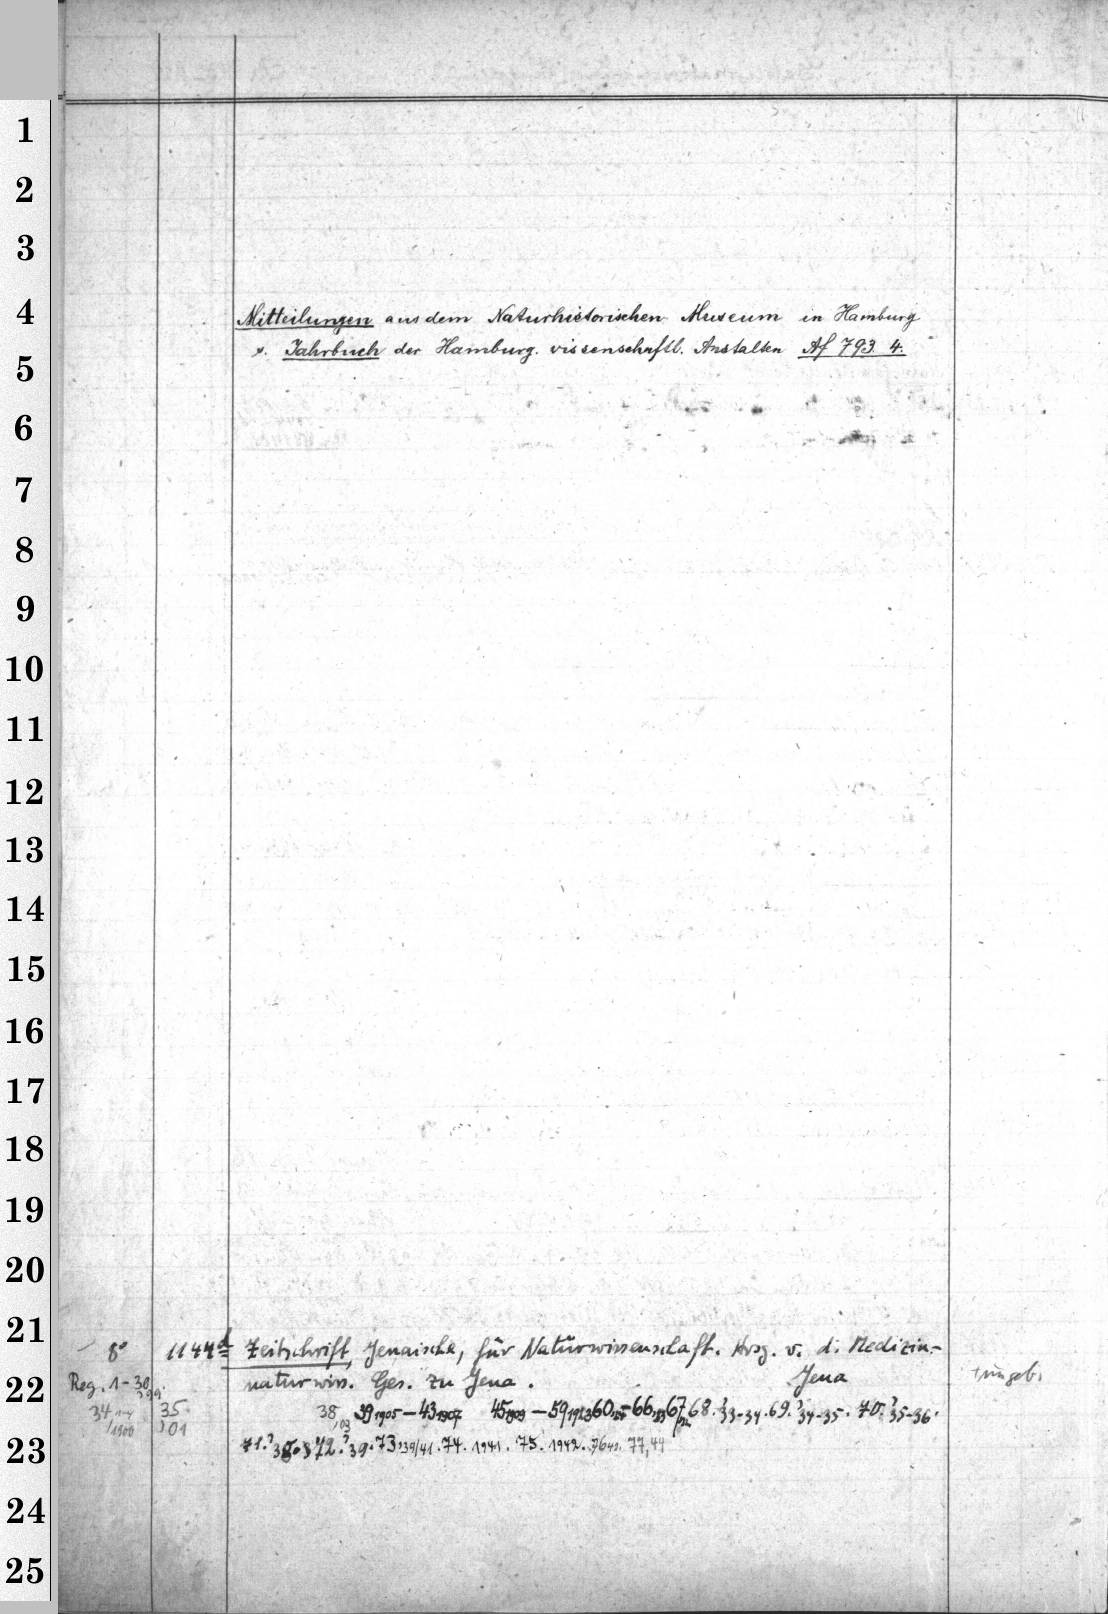 1
2
3
4
Mitteilungen aus dem Naturhistorischen Museum in Hamburg
s. Jahrbuch der Hamburg. wissenschaftl. Anstalten Af 793 4.
5
6
7
8
9
10
11
12
13
14
15
16
17
18
19
20
21
8° 1144d Zeitschrift, Jenaische, für Naturwissenschaft. Hrsg. v. d. Medizin-
22
Reg. 1-30 naturwiss. Ges. zu Jena. Jena
34 1900 35. '01 38, 03 39 1905 - 43 1907 45 1909 - 59 1923 60 - 66 67 68. '33-34. 69. '34-35. 70. '35-36.
23
71. '38. 72. '39. 73. '39/41. 74. 1941. 75. 1942. 76 43. 77, 44
24
25